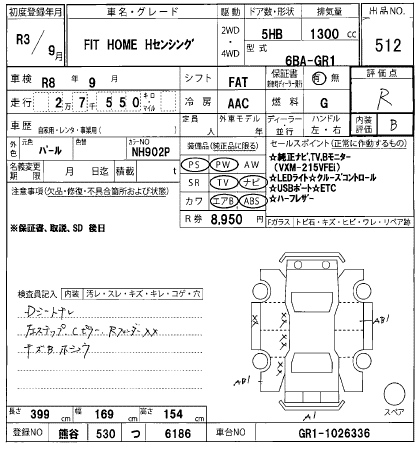 初度登録年月 車名・グレード 駆動 ドア数・形状 排気量 出品NO.
R3/9月 FIT HOME Hセンシング 2WD・4WD 5HB 1300cc 512
型式 6BA-GR1
車検 R8年9月 シフト FAT 保証書 有・無 評価点 R
走行 27,550 キロ・マイル 冷房 AAC 燃料 G
車歴 自家用・レンタ・事業用( ) 定員 人 外車モデル 年 ディーラー・並行 ハンドル 左・右 内装評価 B
外色 元色 パール 色替 カラーNO NH902P
名義変更期限 月 日 積載 t
装備品(純正品に限る)
PS PW AW
SR TV ナビ
カワ エアB ABS
R券 8,950円
セールスポイント(正常に作動するもの)
★純正ナビ,TV,Bモニター
(VXM-215VFEi)
★LEDライト☆クルーズコントロール
★USBポート☆ETC
★ハーフレザー
注意事項(欠品・修復・不具合箇所および状態)
※保証書、取説、SD 後日
Fガラス トビ石・キズ・ヒビ・ワレ・リペア跡
検査員記入 内装 汚レ・スレ・キズ・キレ・コゲ・穴
Dシートヤレ
キズB
XX
X
X
AB1
AB1
A1
スペア
長さ 399cm 幅 169cm 高さ 154cm
登録NO 熊谷 530 つ 6186 車台NO GR1-1026336